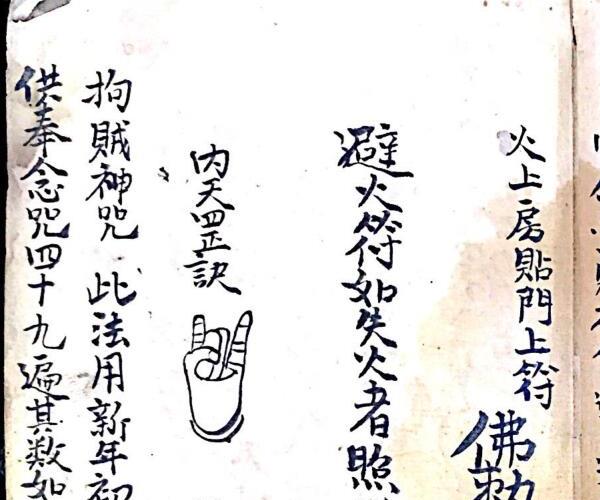 火上房貼門上符
佛勅
避火符如失火者照
内天四正訣
拘賊神咒 此法用新年初
供奉念咒四十九遍其数如